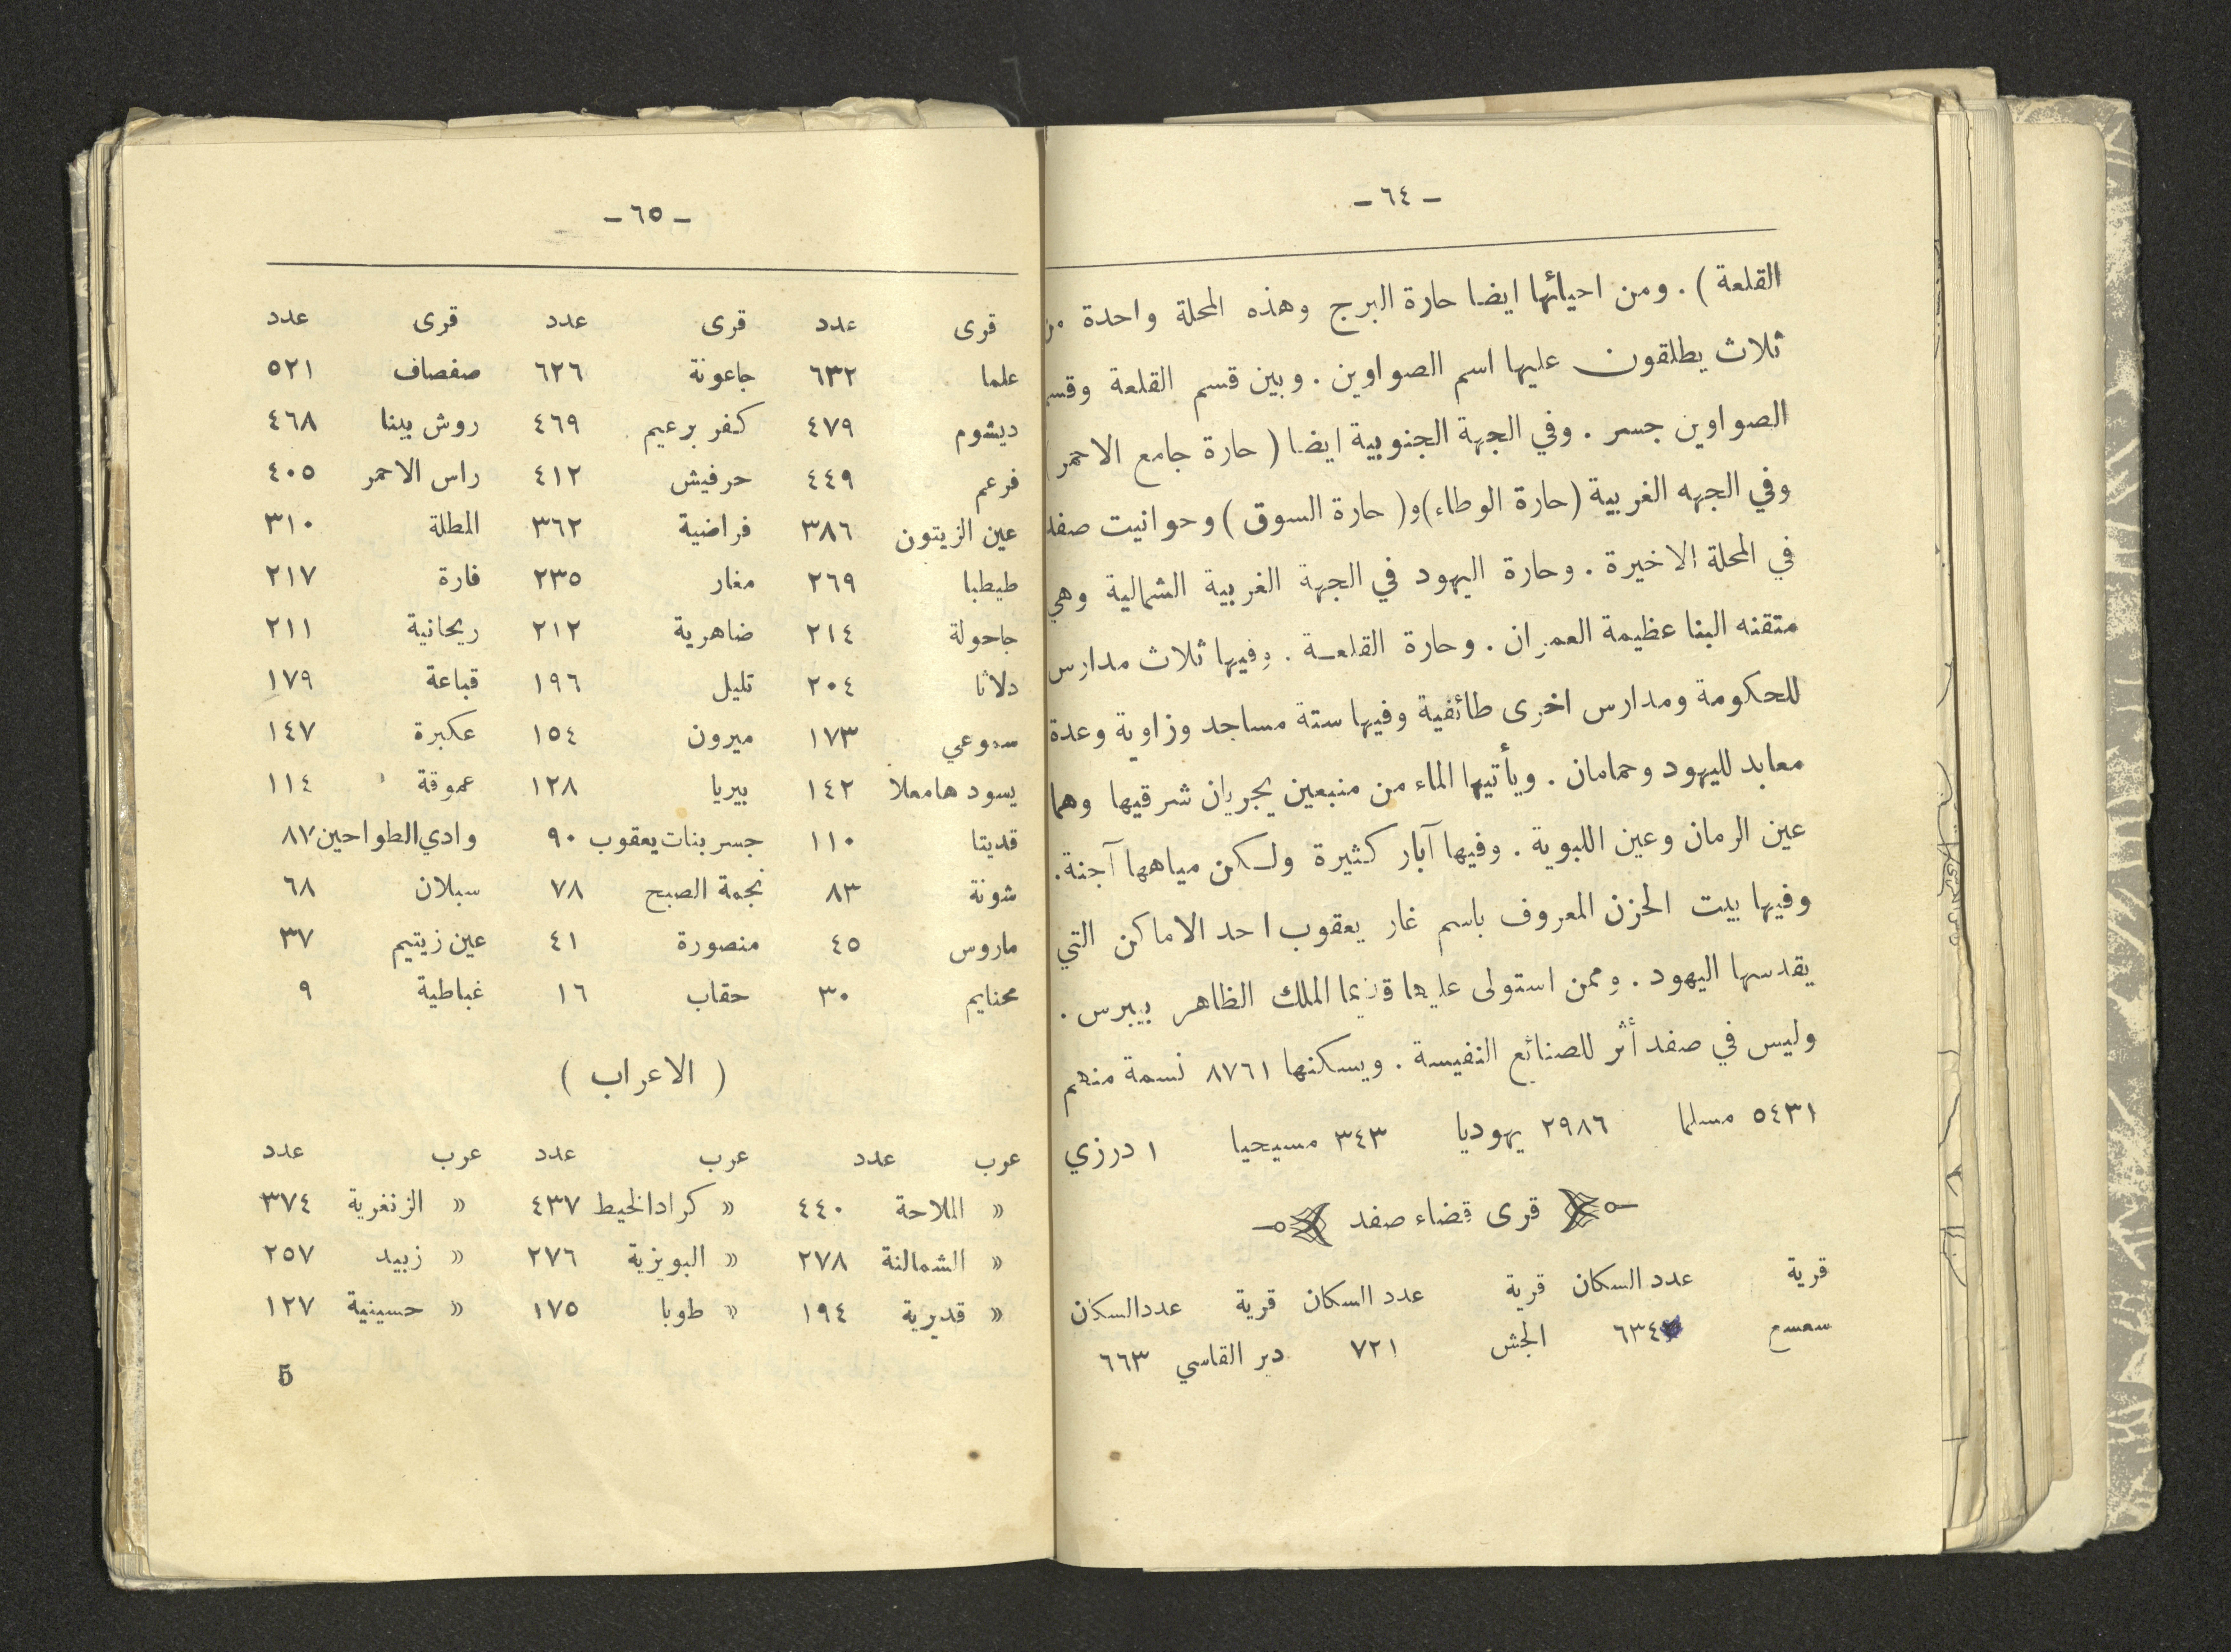 – ٦٤ –
القلعة ) . ومن احيائها ايضا حارة البرج وهذه المحلة واحدة من
ثلاث يطلقون عليها اسم الصواوين . وبين قسم القلعة وقسم
الصواوين جسر . وفي الجهة الجنوبية ايضا ( حارة جامع الاحمر )
وفي الجهه الغربية ( حارة الوطاء ) و ( حارة السوق ) وحوانيت صفد
في المحلة الاخيرة . وحارة اليهود في الجهة الغربية الشمالية وهي
متقنه البنا عظيمة العمران . وحارة القلعة . وفيها ثلاث مدارس
للحكومة ومدارس اخرى طائفية وفيها ستة مساجد وزاوية وعدة
معابد لليهود وحمامان . ويأتيها الماء من منبعين يجريان شرقيها وهما
عين الرمان وعين اللبوية . وفيها آبار كثيرة ولكن مياهها آجنة .
وفيها بيت الحزن المعروف باسم غار يعقوب احد الاماكن التي
يقدسها اليهود . وممن استولى عليها قديما الملك الظاهر بيبرس .
وليس في صفد أثر للصنائع النفيسة . ويسكنها ٨٧٦١ نسمة منهم
٥٤٣١ مسلما ٢٩٨٦ يهوديا ٣٤٣ مسيحيا ١ درزي
قرى قضاء صفد
قرية عدد السكان قرية عدد السكان قرية عدد السكان
سعسع ٦٣٤ الجش ٧٢١ دير القاسي ٦٦٣
– ٦٥ –
قرى عدد قرى عدد قرى عدد
علما ٦٣٢ جاعونة ٦٢٦ صفصاف ٥٢١
ديشوم ٤٧٩ كفر برعيم ٤٦٩ روش بينا ٤٦٨
فرعم ٤٤٩ حرفيش ٤١٢ راس الاحمر ٤٠٥
عين الزيتون ٣٨٦ فراضية ٣٦٢ المطلة ٣١٠
طيطبا ٢٦٩ مغار ٢٣٥ فارة ٢١٧
جاحولة ٢١٤ ضاهرية ٢١٢ ريحانية ٢١١
دلاثا ٢٠٤ تليل ١٩٦ قباعة ١٧٩
سموعي ١٧٣ ميرون ١٥٤ عكبرة ١٤٧
يسود هامعلا ١٤٢ بيريا ١٢٨ عموقة ١١٤
قديتا ١١٠ جسر بنات يعقوب ٩٠ وادي الطواحين ٨٧
شونة ٨٣ نجمة الصبح ٧٨ سبلان ٦٨
ماروس ٤٥ منصورة ٤١ عين زيتيم ٣٧
محنايم ٣٠ حقاب ١٦ غباطية ٩
( الاعراب )
عرب عدد عرب عدد عرب عدد
« الملاحة ٤٤٠ « كراد الخيط ٤٣٧ « الزنغرية ٣٧٤
« الشمالنة ٢٧٨ « البويزية ٢٧٦ « زبيد ٢٥٧
« قديرية ١٩٤ « طوبا ١٧٥ « حسينية ١٢٧
5